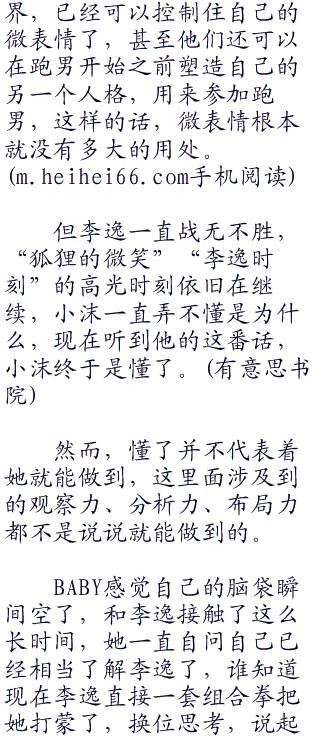 界，已经可以控制住自己的
微表情了，甚至他们还可以
在跑男开始之前塑造自己的
另一个人格，用来参加跑
男，这样的话，微表情根本
就没有多大的用处。
(m.heihei66.com手机阅读)
但李逸一直战无不胜，
“狐狸的微笑”“李逸时
刻”的高光时刻依旧在继
续，小沫一直弄不懂是为什
么，现在听到他的这番话，
小沫终于是懂了。(有意思书
院)
然而，懂了并不代表着
她就能做到，这里面涉及到
的观察力、分析力、布局力
都不是说说就能做到的。
BABY感觉自己的脑袋瞬
间空了，和李逸接触了这么
长时间，她一直自问自己已
经相当了解李逸了，谁知道
现在李逸直接一套组合拳把
她打蒙了，换位思考，说起